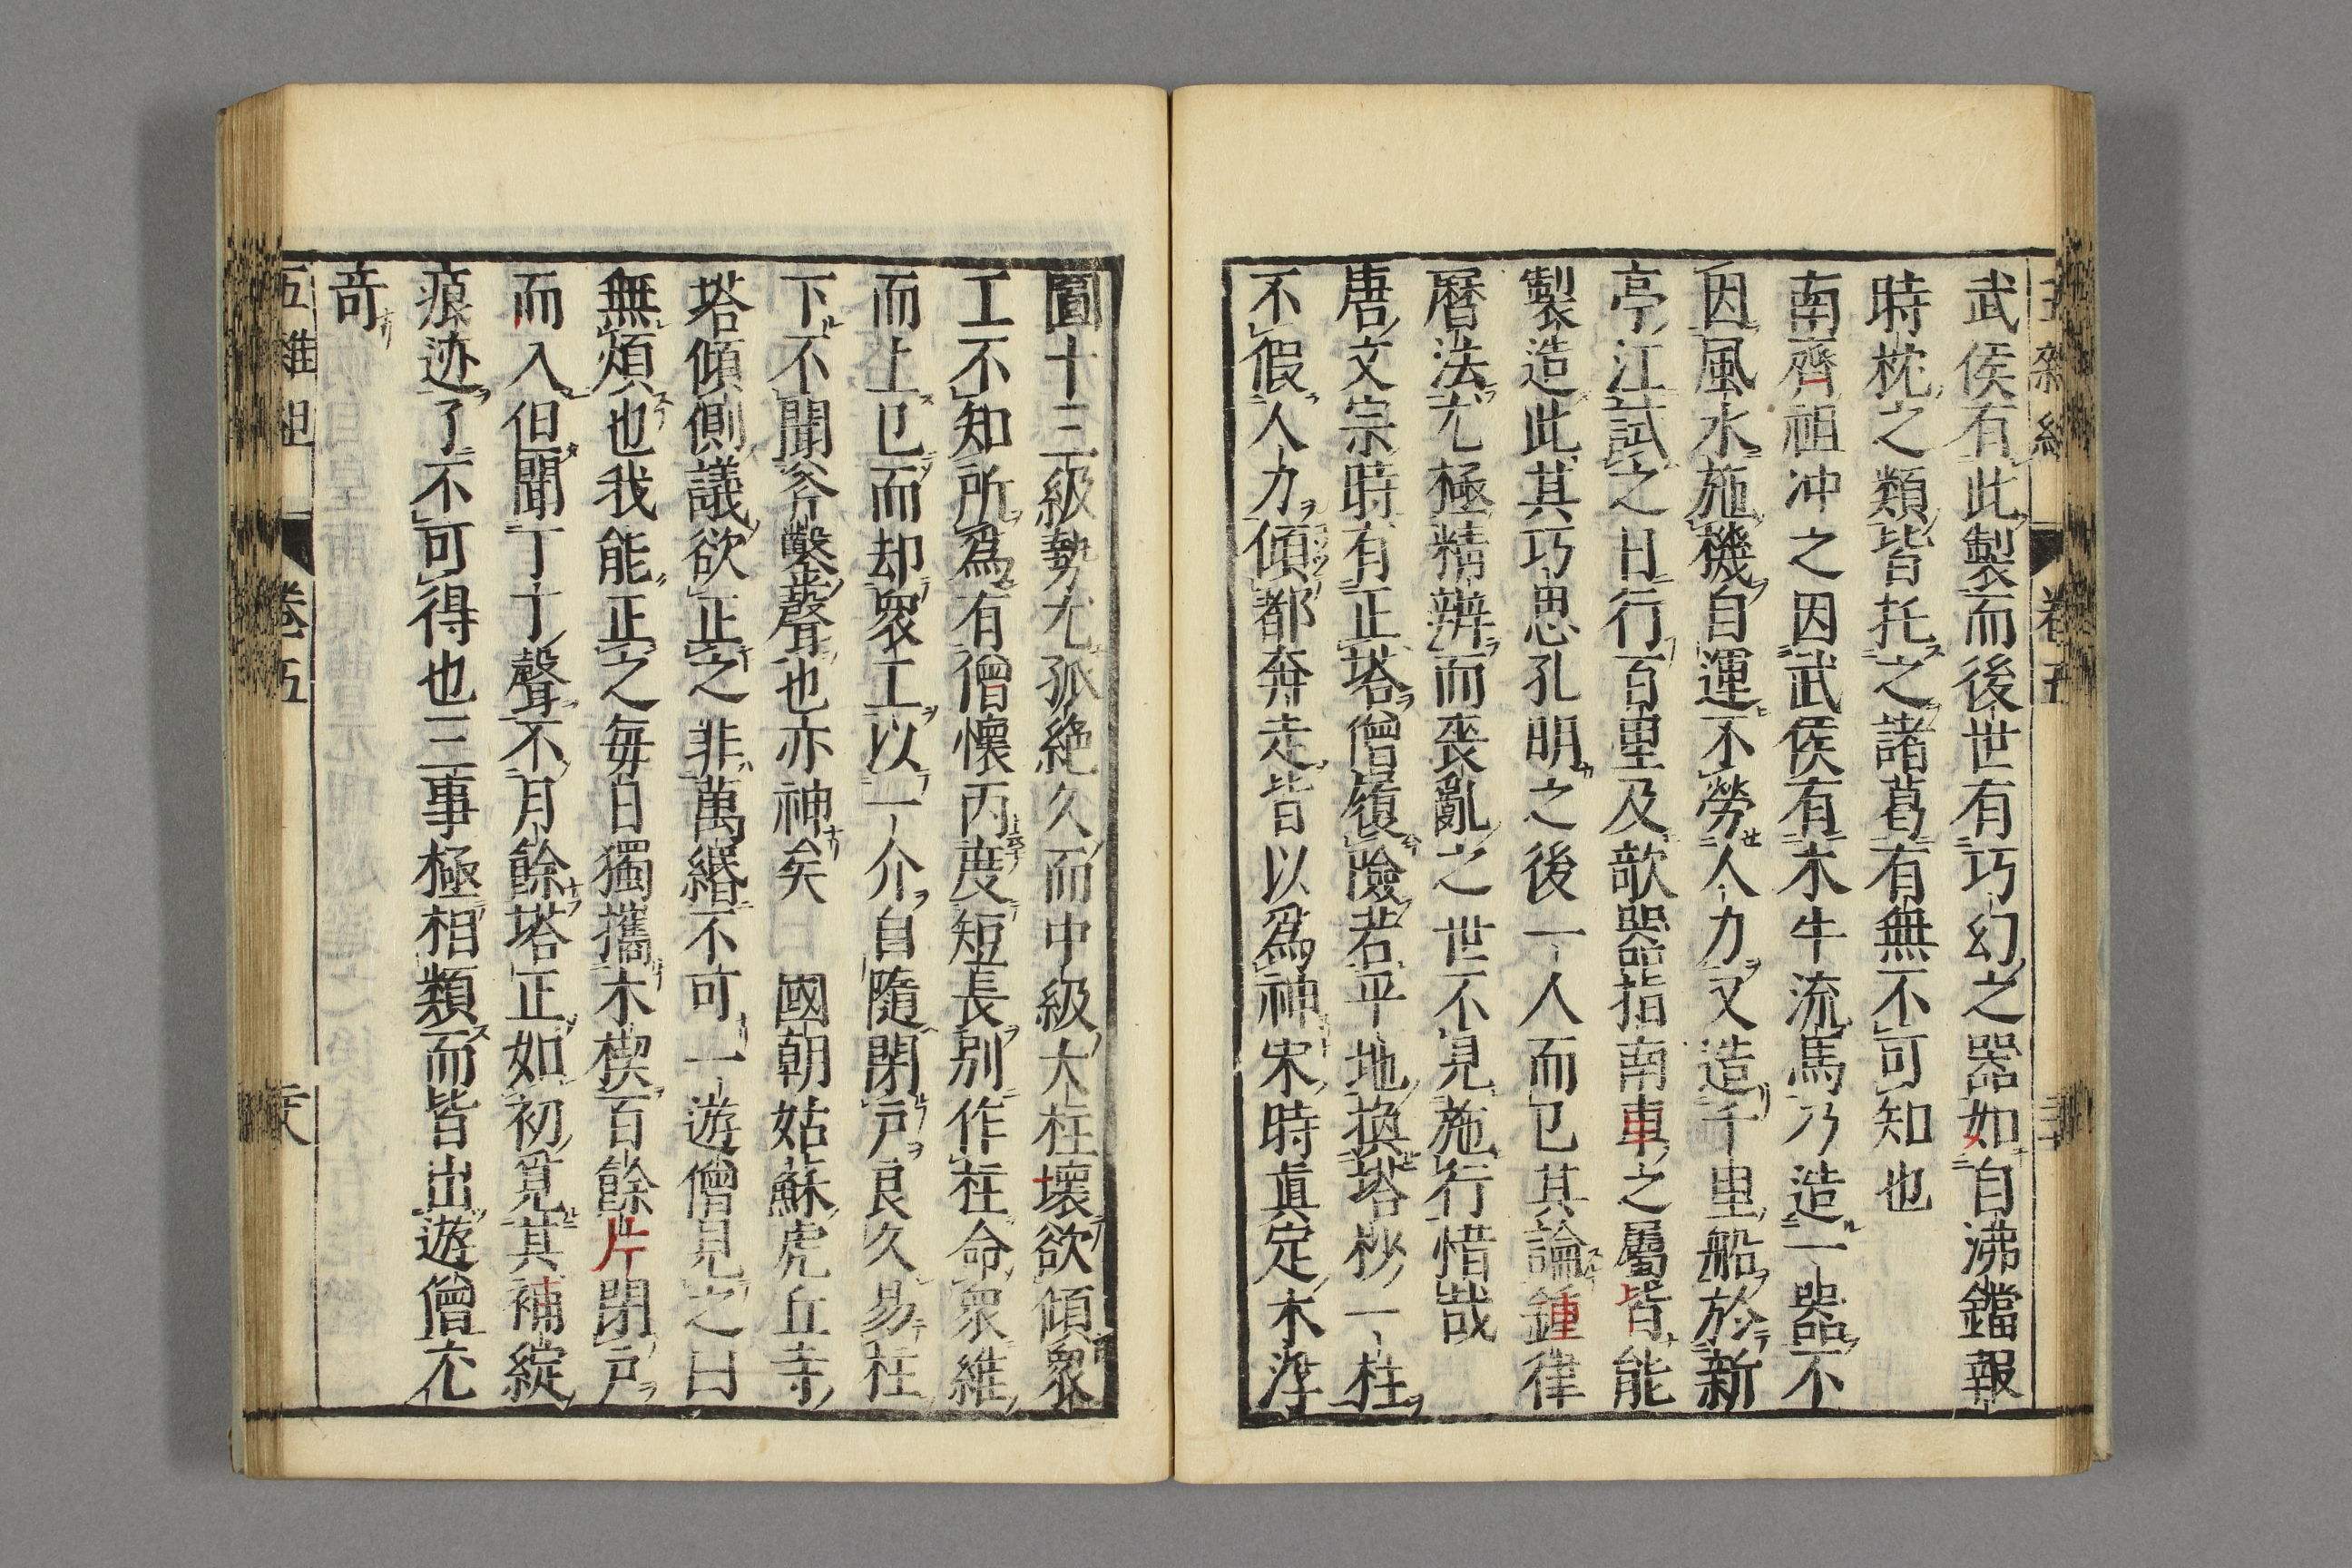 武侯有此製而後世有巧幻之器如自沸鐺報
時枕之類皆托之諸葛有無不可知也
南齊祖冲之因武侯有木牛流馬乃造一器不
因風水施機自運不勞人力又造千里船於新
亭江試之日行百里及欹器指南車之屬皆能
製造此其巧思孔明之後一人而已其論鍾律
曆法尤極精辨而喪亂之世不見施行惜哉
唐文宗時有正塔僧履險若平地換塔杪一柱
不假人力傾都奔走皆以爲神宋時眞定木浮
圖十三級勢尤孤絶久而中級大柱壞欲傾衆
工不知所爲有僧懷丙度短長別作柱命衆維
而上已而却衆工以一介自隨閉戸良久易柱
下不聞斧鑿聲也亦神矣 國朝姑蘇虎丘寺
塔傾側議欲正之非萬緡不可一遊僧見之曰
無煩也我能正之毎日獨攜木楔百餘片閉戸
而入但聞丁丁聲不月餘塔正如初覓其補綻
痕迹了不可得也三事極相類而皆出遊僧尤
竒
五雜組 卷五